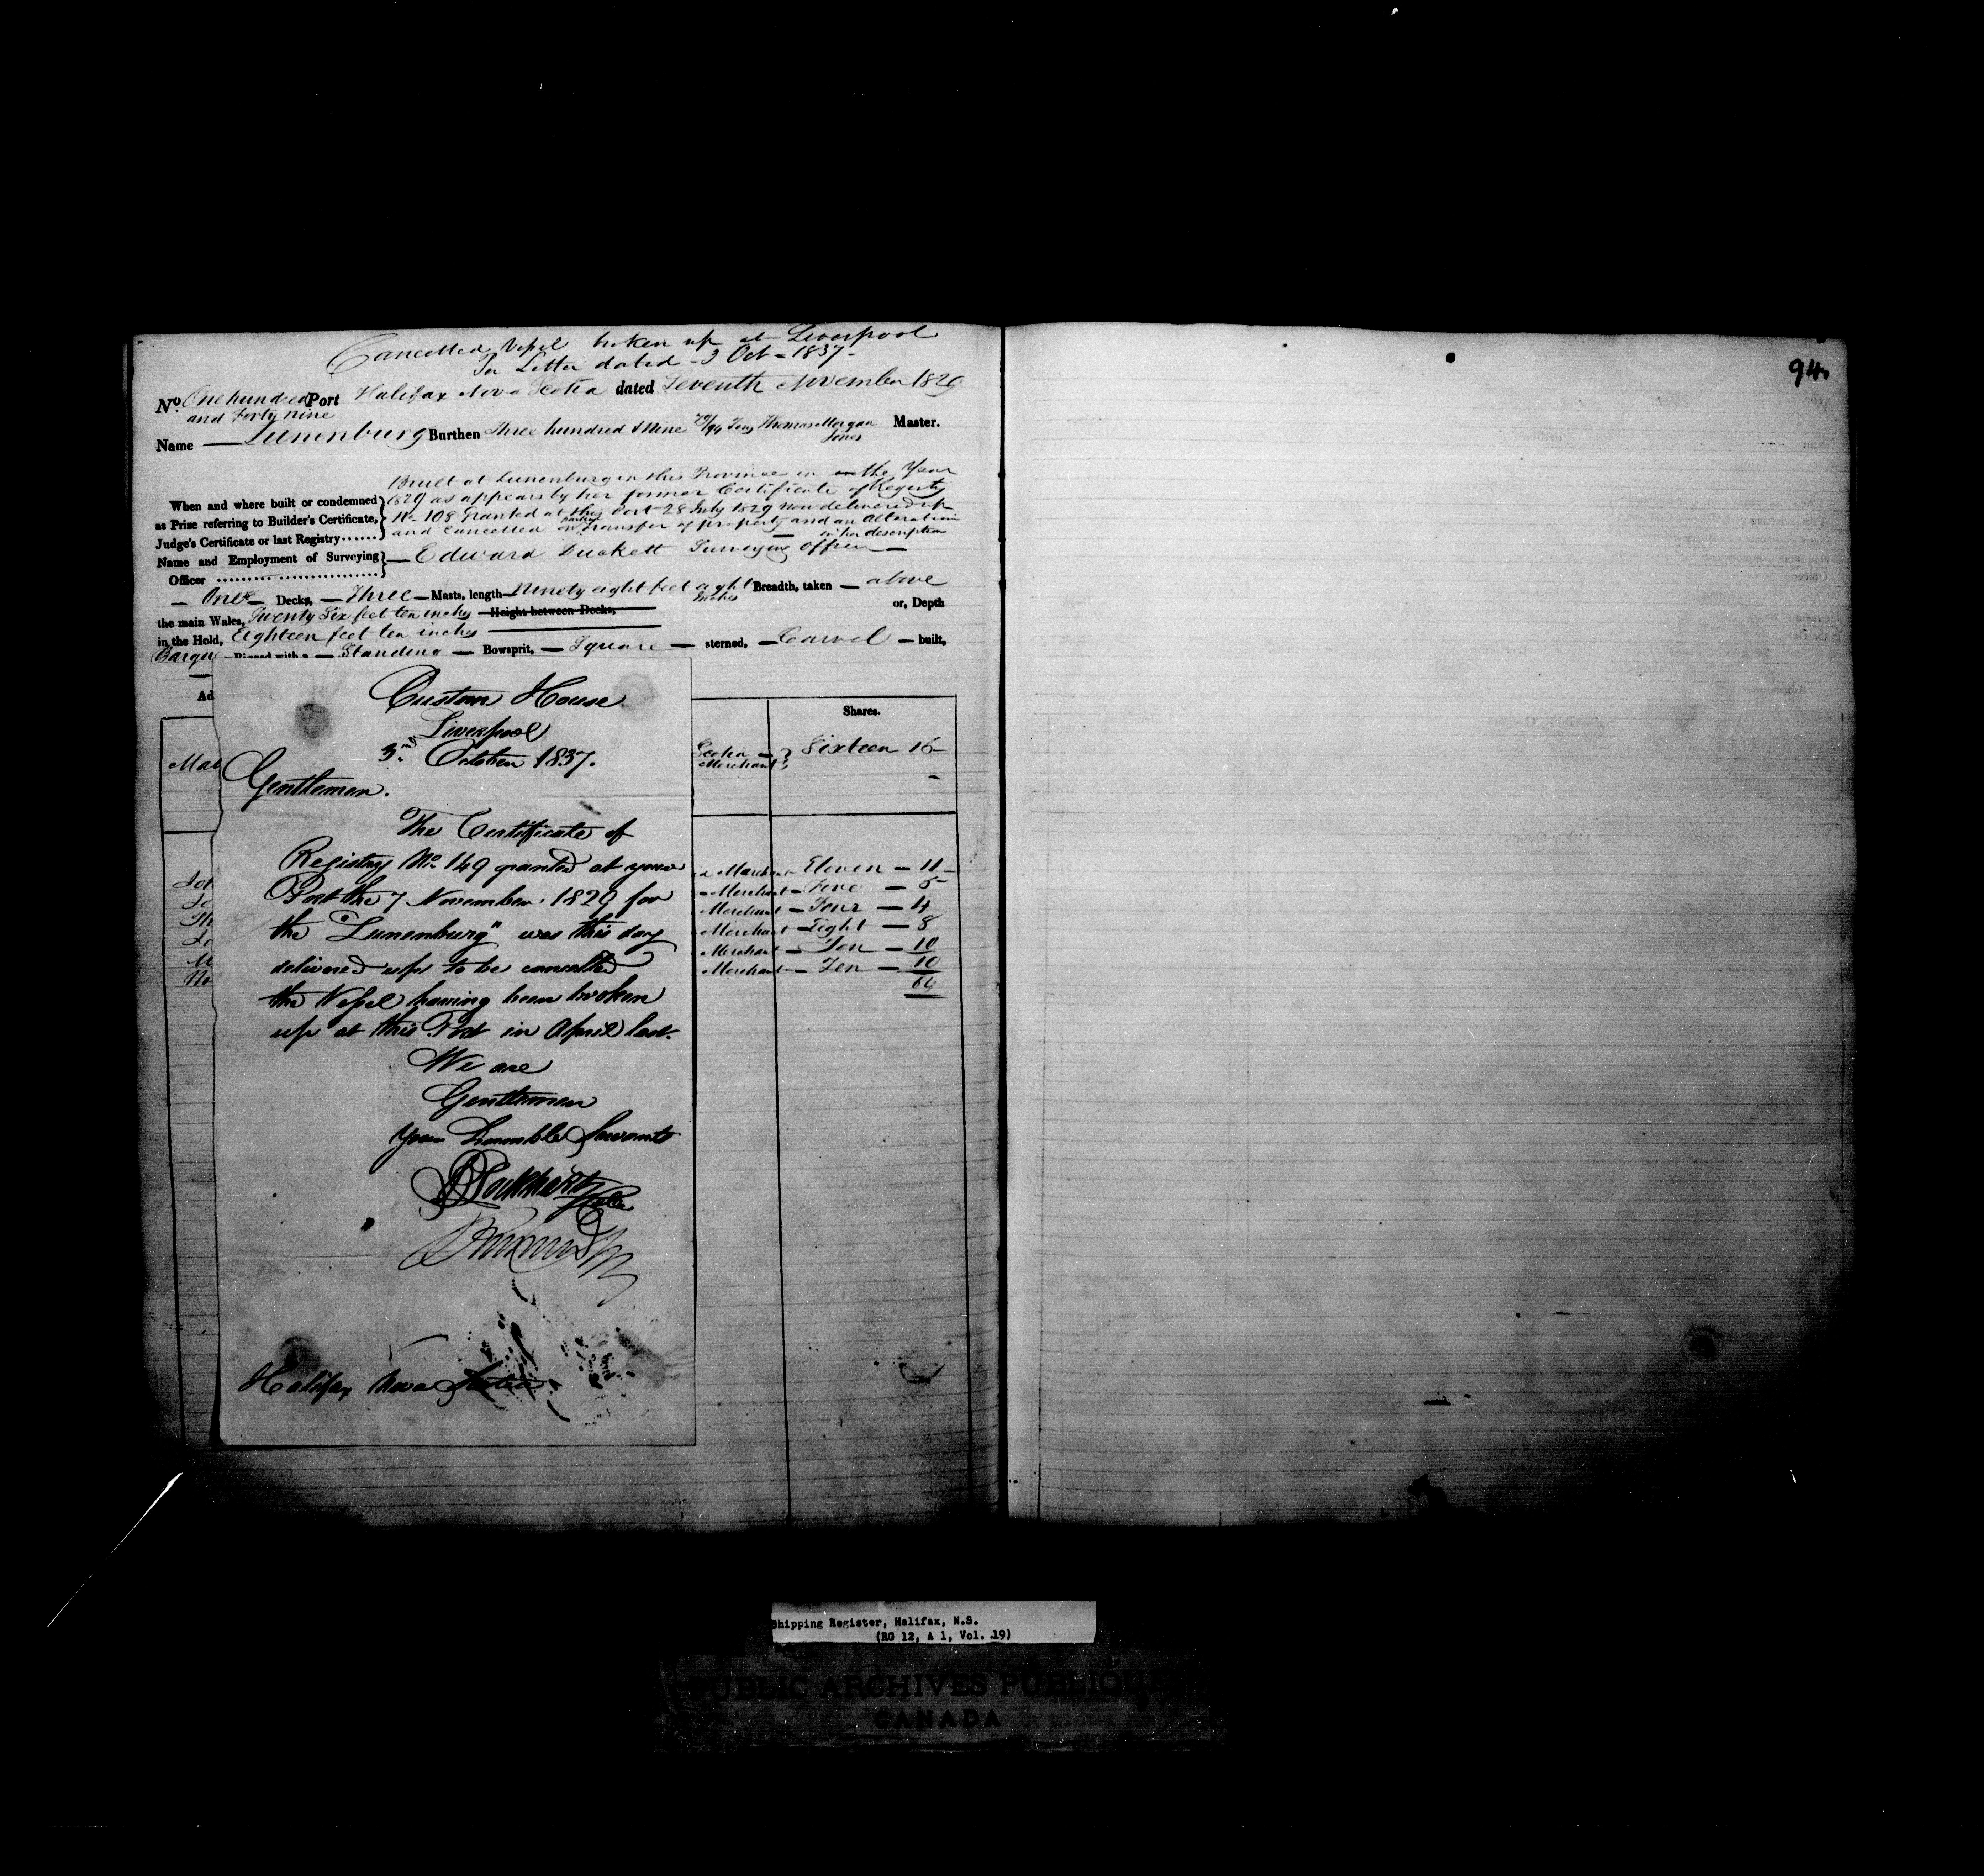 Cancelled Vessel broken up at Liverpool
Per Letter dated 3 Oct - 1837 -
94.
No. One hundred and Forty nine Port Halifax Nova Scotia dated Seventh November 1829
Name — Lunenburg Burthen Three hundred & Nine 79/94 Tons Thomas Morgan Jones Master.
Built at Lunenburg in this Province in the Year
When and where built or condemned 1829 as appears by her former Certificate of Registry
as Prize referring to Builder's Certificate, No. 108 Granted at this Port 28 July 1829 Now delivered up
Judge's Certificate or last Registry...... and Cancelled on partial Transfer of property and an Alteration in her description
Name and Employment of Surveying Officer — Edward Duckett Surveying Officer —
— One — Decks, — Three — Masts, length Ninety eight feet eight Inches Breadth, taken — above
the main Wales, Twenty Six feet ten inches Height between Decks, or, Depth
in the Hold, Eighteen feet ten inches
Barque Rigged with a — Standing — Bowsprit, — Square — sterned, — Carvel — built,
Ad
Shares.
Mal
Scotia —
Merchant
Sixteen 16
Merchant — Eleven — 11
Merchant — Five — 5
Merchant — Four — 4
Merchant — Eight — 8
Merchant — Ten — 10
Merchant — Ten — 10
64
Custom House
Liverpool
3rd October 1837.
Gentlemen.
The Certificate of
Registry No. 149 granted at your
Port the 7 November 1829 for
the "Lunenburg" was this day
delivered up to be cancelled
the Vessel having been broken
up at this Port in April last.
We are
Gentlemen
Your humble Servants
Halifax Nova Scotia
Shipping Register, Halifax, N.S.
(RG 12, A 1, Vol. 19)
PUBLIC ARCHIVES PUBLIQUES
CANADA